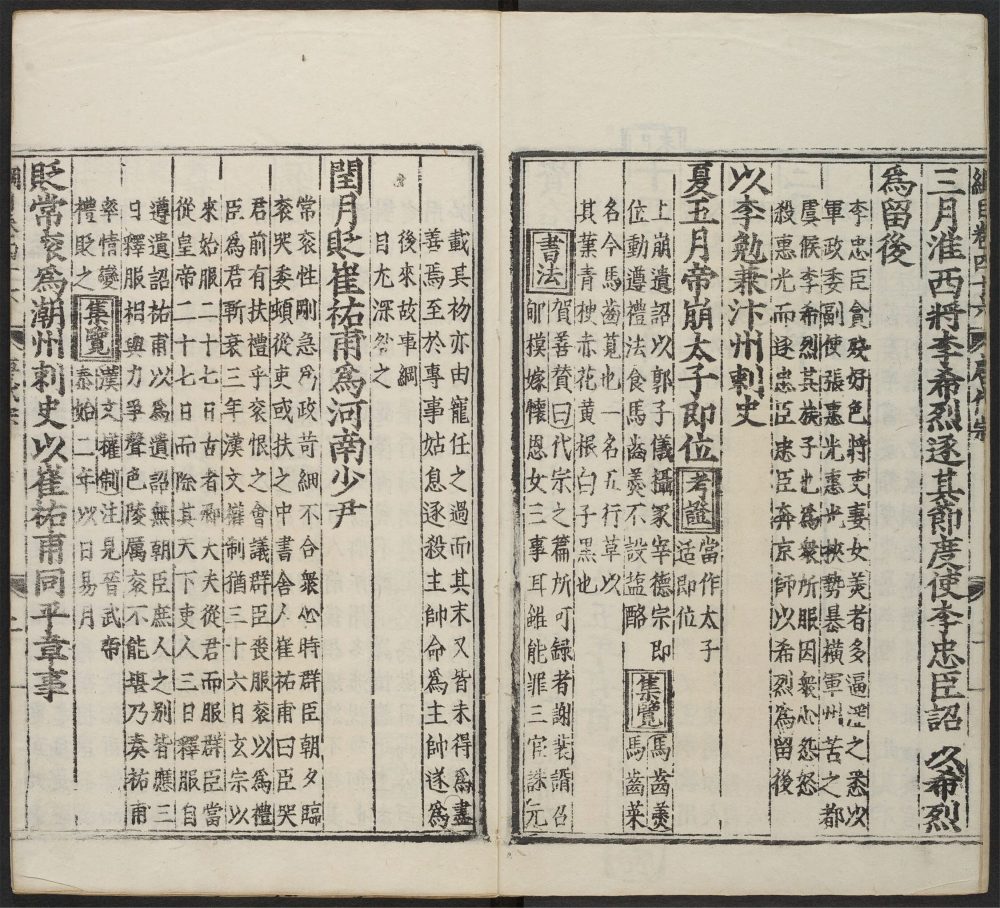 三月淮西將李希烈逐其節度使李忠臣詔以希烈
爲留後
李忠臣貪殘好色將吏妻女美者多逼淫之悉以
軍政委副使張惠光惠光挾勢暴橫軍州苦之都
虞候李希烈其族子也爲衆所服因衆心怨怒
殺惠光而逐忠臣忠臣奔京師以希烈爲留後
以李勉兼汴州刺史
夏五月帝崩太子即位
考證
當作太子
适即位
上崩遺詔以郭子儀攝冢宰德宗即
位動遵禮法食馬齒羹不設鹽酪
集覽
馬齒羹
馬齒菜
名今馬齒莧也一名五行草以
其葉青梗赤花黃根白子黑也
書法
賀善贊曰代宗之篇所可録者謝裴諝召
郇模嫁懷恩女三事耳雖能罪三宦誅元
載其初亦由寵任之過而其末又皆未得爲盡
善焉至於專事姑息逐殺主帥命爲主帥遂爲
後來故事綱
目尤深咎之
閏月貶崔祐甫爲河南少尹
常衮性剛急爲政苛細不合衆心時群臣朝夕臨
衮哭委頓從吏或扶之中書舍人崔祐甫曰臣哭
君前有扶禮乎衮恨之會議群臣喪服衮以爲禮
臣爲君斬衰三年漢文權制猶三十六日玄宗以
來始服二十七日古者卿大夫從君而服群臣當
從皇帝二十七日而除其天下吏人三日釋服自
遵遺詔祐甫以爲遺詔無朝臣庶人之別皆應三
日釋服相與力爭聲色陵厲衮不能堪乃奏祐甫
率情變
禮貶之
集覽
漢文權制注見晉武帝
泰始二年以日易月
貶常衮爲潮州刺史以崔祐甫同平章事